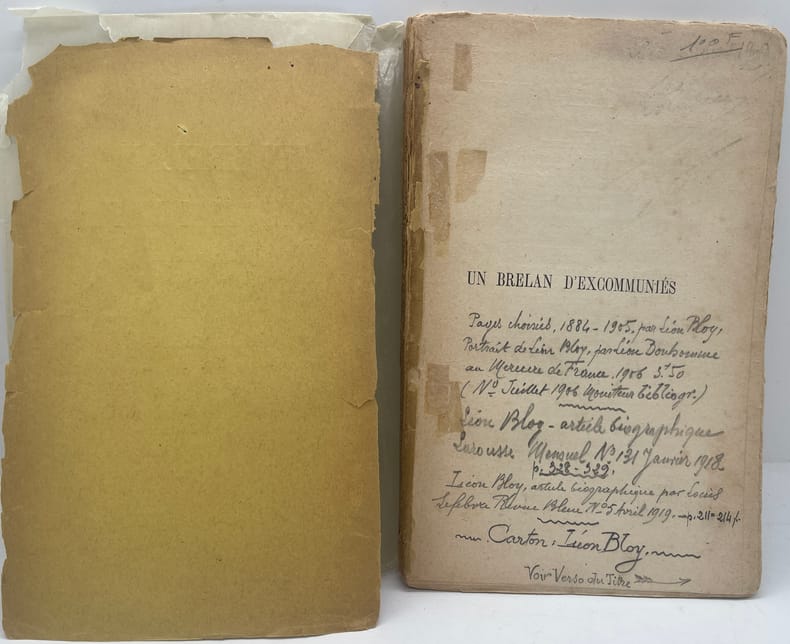 100 F
UN BRELAN D'EXCOMMUNIÉS
Pages choisies, 1884-1905, par Léon Bloy,
Portrait de Léon Bloy, par Léon Bonhomme
au Mercure de France. 1906 3f50
(No Juillet 1906 Moniteur bibliogr.)
Léon Bloy - article biographique
Larousse Mensuel No 131 Janvier 1918
p. 328-329.
Léon Bloy, article biographique par Louis
Lefebvre Revue Bleue No 5 Avril 1919. - p. 211=214
Carton: Léon Bloy.
Voir Verso du Titre